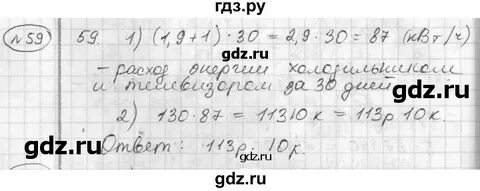 гдз.ру
№59 59. 1) (1,9+1)·30 = 2,9·30 = 87 (кВт/ч)
- расход энергии холодильником
и телевизором за 30 дней
2) 130·87 = 11310к = 113р 10к.
gdz.ru gdz.ru
Ответ: 113р. 10к.
gdz.ru